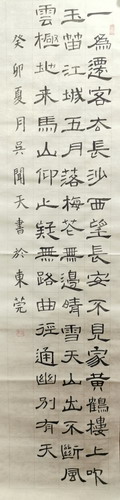 一為遷客去長沙西望長安不見家黃鶴樓上吹
玉笛江城五月落梅花無邊晴雪天山出不斷風
雲極地来高山仰止疑無路曲徑通幽別有天
癸卯夏月吳聞天書於東莞